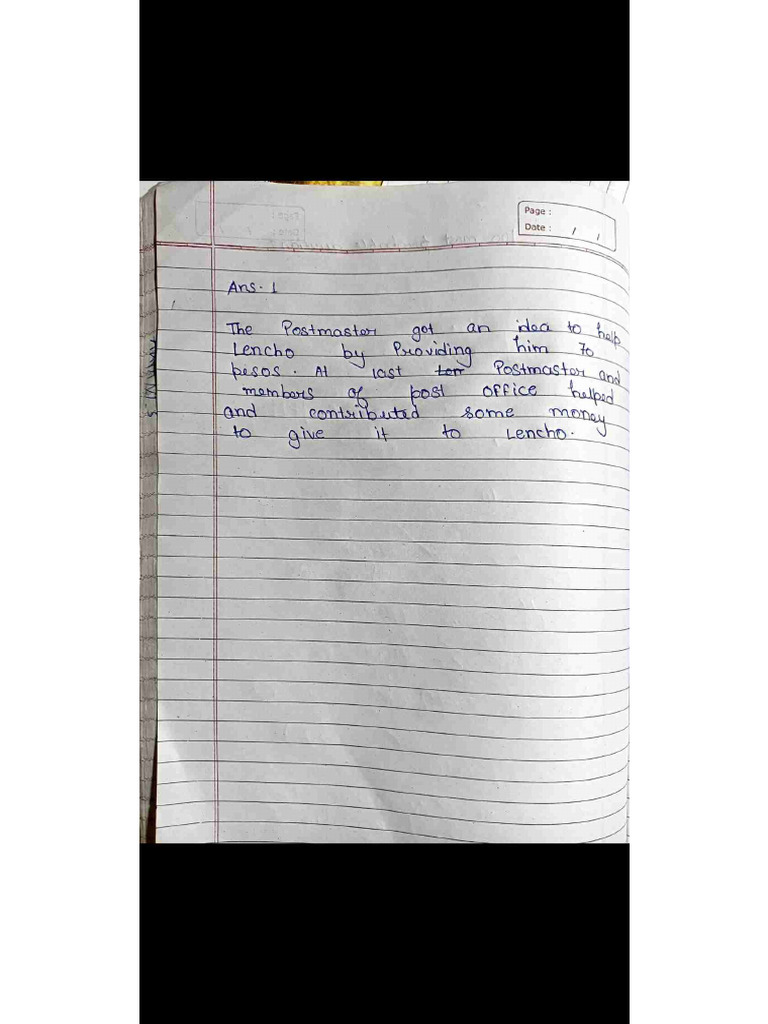 Page :
Date : / /
Ans. 1
The Postmaster got an idea to help
Lencho by Providing him 70
pesos. At last Postmaster and
members of post office helped
and contributed some money
to give it to Lencho.